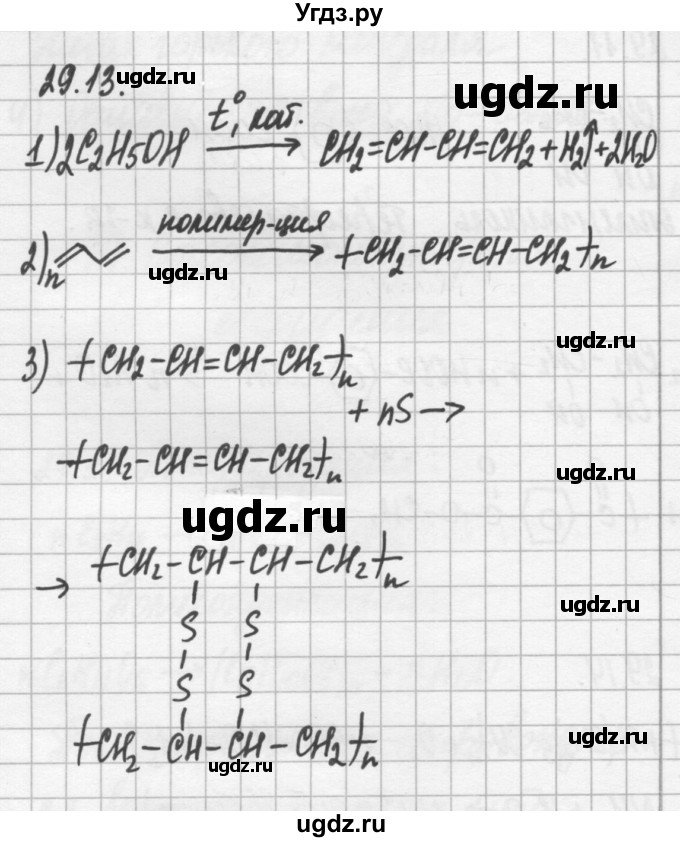 Угдз.ру
29.13. ugdz.ru
ugdz.ru
1) 2C2H5OH t°, кат. → CH2=CH-CH=CH2 + H2↑ + 2H2O
2) n полимер-ция → (-CH2-CH=CH-CH2-)n
ugdz.ru
ugdz.ru
3) (-CH2-CH=CH-CH2-)n
+ nS →
(-CH2-CH=CH-CH2-)n
ugdz.ru
ugdz.ru
→ (-CH2-CH-CH-CH2-)n
ugdz.ru
S S
S S
(-CH2-CH-CH-CH2-)n
ugdz.ru
ugdz.ru
ugdz.ru